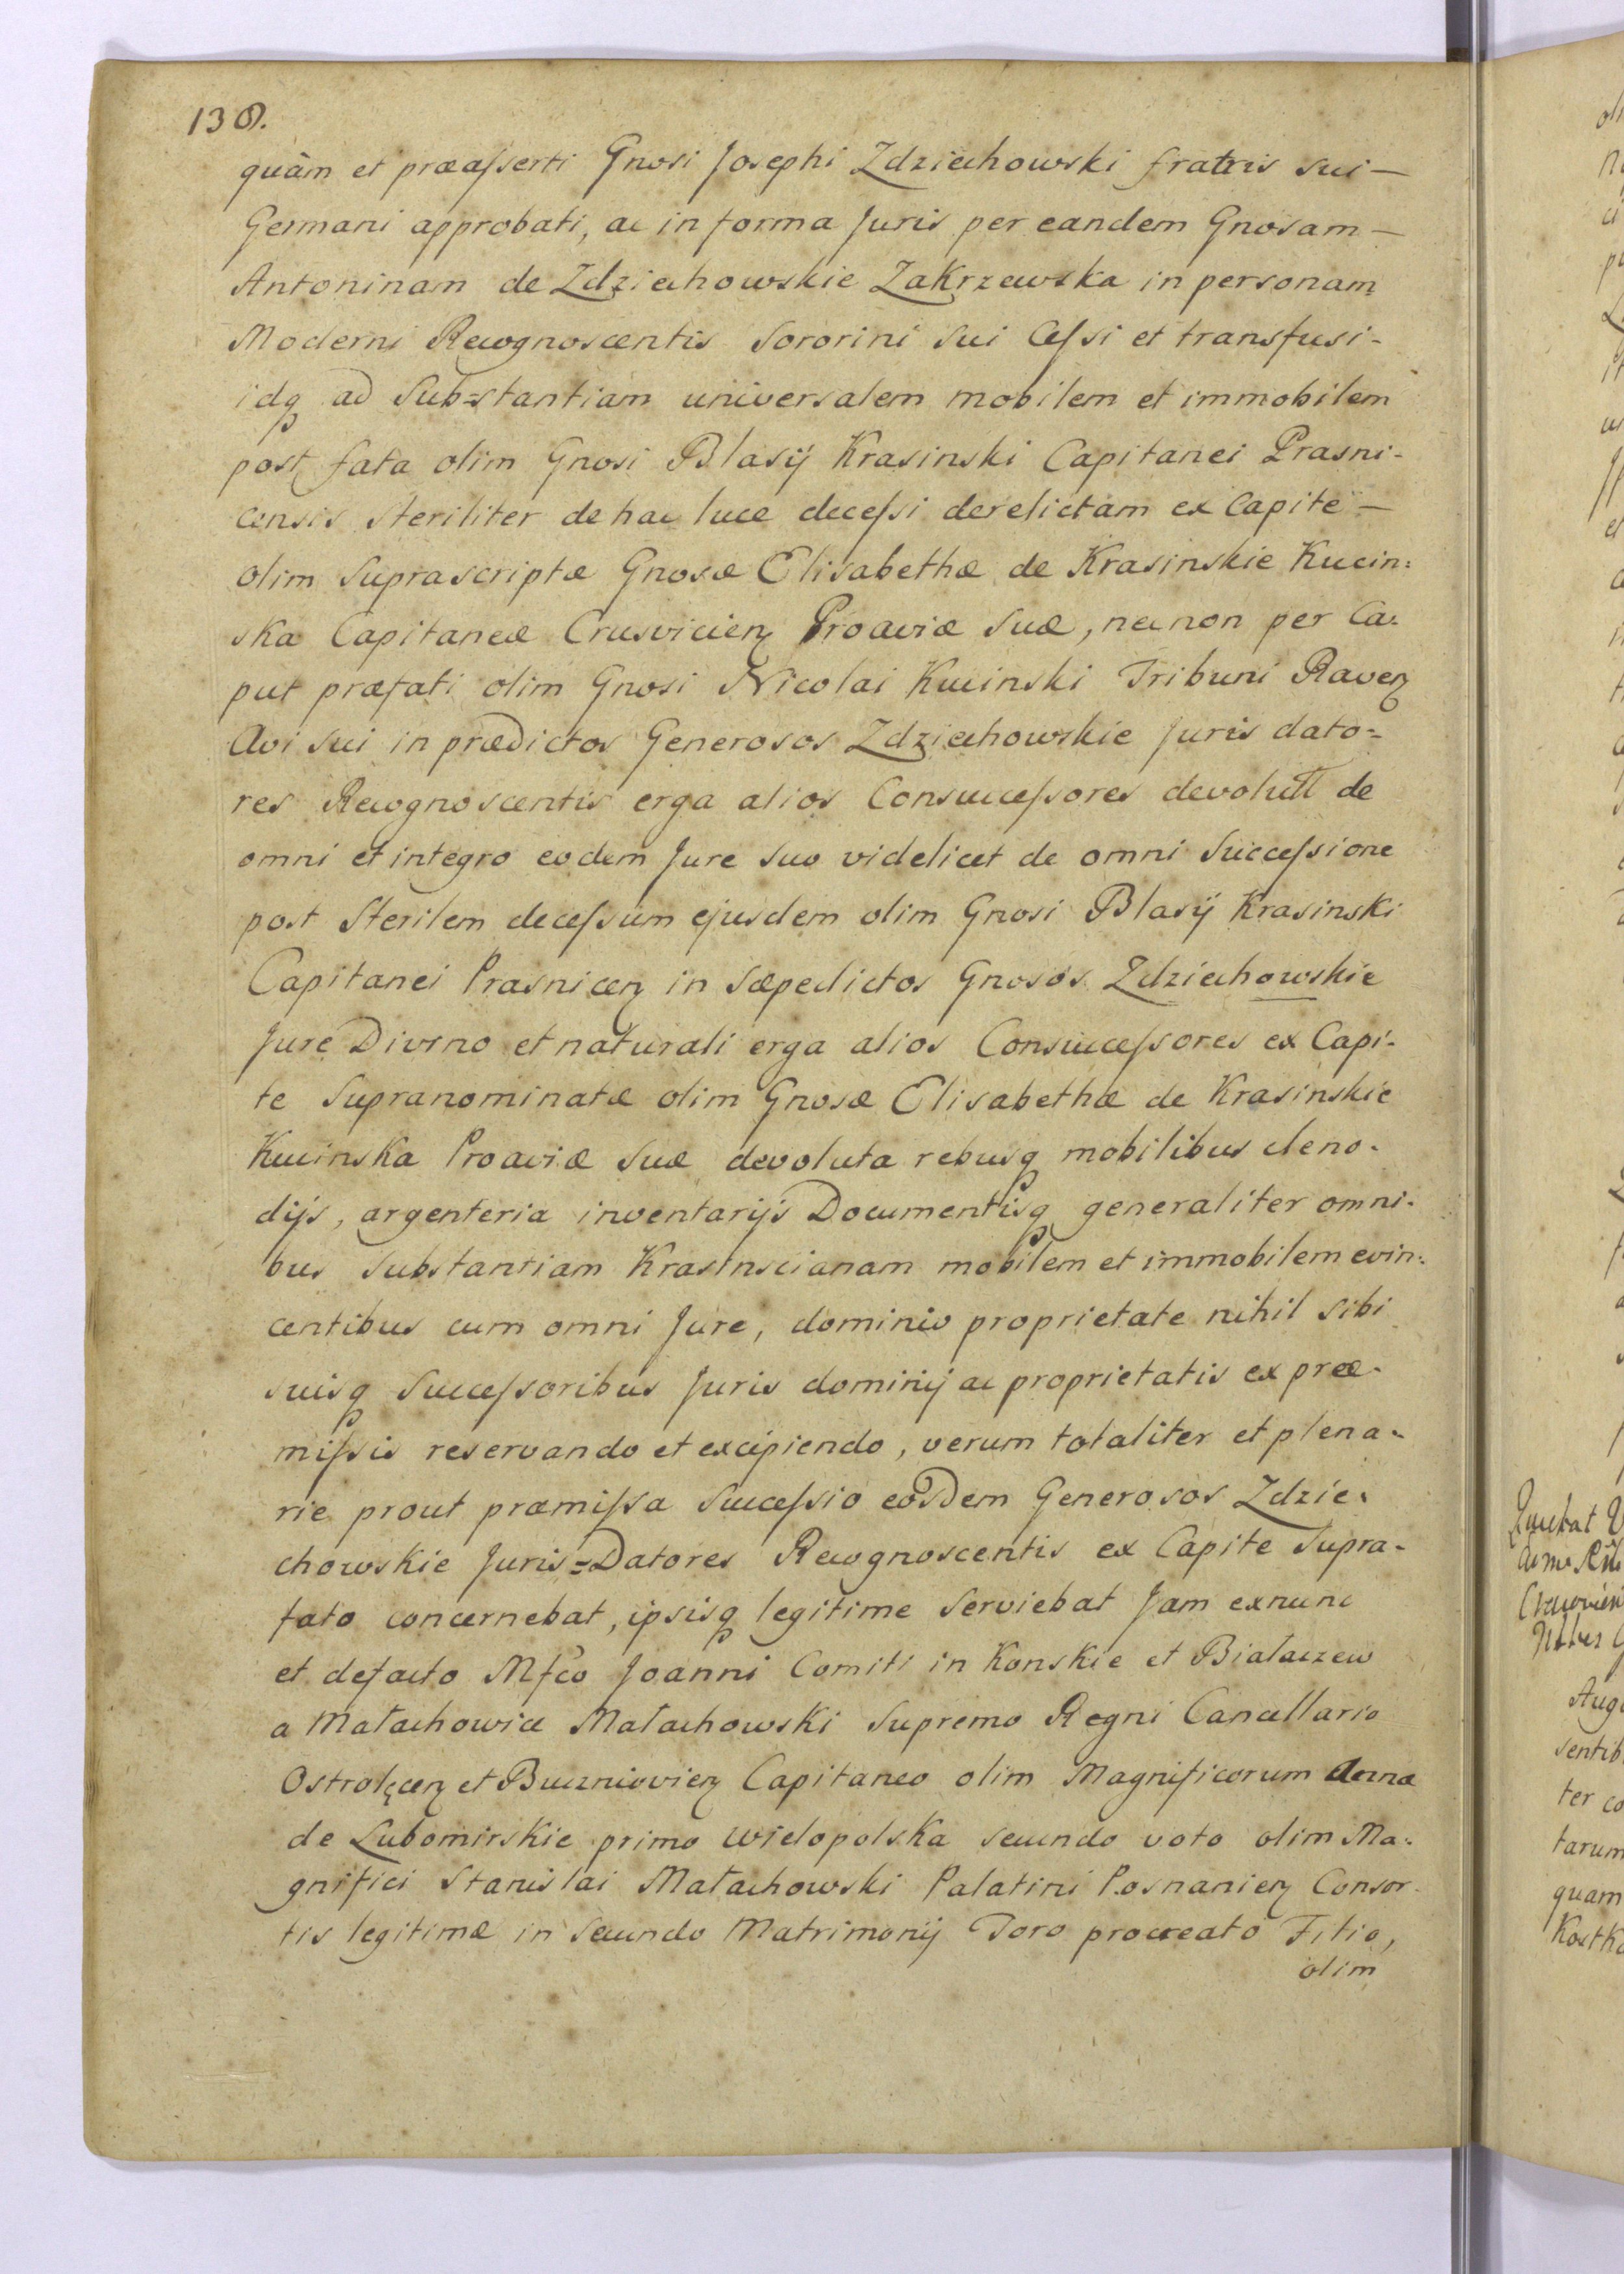 138.
quàm et præaſserti Gnosi Josephi Zdziechowski fratris sui —
Germani approbati, ac in forma Juris per eandem Gnosam —
Antoninam de Zdziechowskie Zakrzewska in personam
Moderni Recognoscentis Sororini Sui Ceſsi et transfusi-
idq ad Sub=stantiam universalem mobilem et immobilem
post fata olim Gnosi Blasij Krasinski Capitanei Prasni-
censis Steriliter de hac luce deceſsi derelictam ex Capite —
olim Suprascriptæ Gnosæ Elisabethæ de Krasinskie Kucin:
ska Capitaneæ Crusvicien Proaviæ Suæ, necnon per Ca:
put præfati olim Gnosi Nicolai Kucinski Tribuni Raven
Avi Sui in prædictos Generosos Zdziechowskie Juris dato=
res Recognoscentis erga alios Consucceſsores devolutt de
omni et integro eodem Jure Suo videlicet de omni Succeſsione
post Sterilem deceſsum ejusdem olim Gnosi Blasij Krasinski
Capitanei Prasnicen in Sæpedictos Gnosos Zdziechowskie
Jure Divino et naturali erga alios Consucceſsores ex Capi-
te Supranominatæ olim Gnosæ Elisabethæ de Krasinskie
Kucinska Proaviæ Suæ devoluta rebusq mobilibus cleno-
dijs, argenteria inventarijs Documentisq generaliter omni-
bus Substantiam Krasinscianam mobilem et immobilem evin:
centibus cum omni Jure, dominio proprietate nihil sibi
suisq Succeſsoribus Juris dominij ac proprietatis ex præ-
miſsis reservando et excipiendo, verum totaliter et plena-
rie prout præmiſsa Succeſsio eosdem Generosos Zdzie-
chowskie Juris=Datores Recognoscentis ex Capite Supra-
fato concernebat, ipsisq legitime Serviebat Jam exnunc
et defacto Mfco Joanni Comiti in Konskie et Białaczew
a Małachowice Małachowski Supremo Regni Cancellario
Ostrołęcen et Buczniovien Capitaneo olim Magnificorum Annæ
de Lubomirskie primo Wielopolska secundo voto olim Ma-
gnifici Stanislai Małachowski Palatini Posnanien Consor-
tis legitimæ in Secundo Matrimonij Toro procreato Filio,
olim